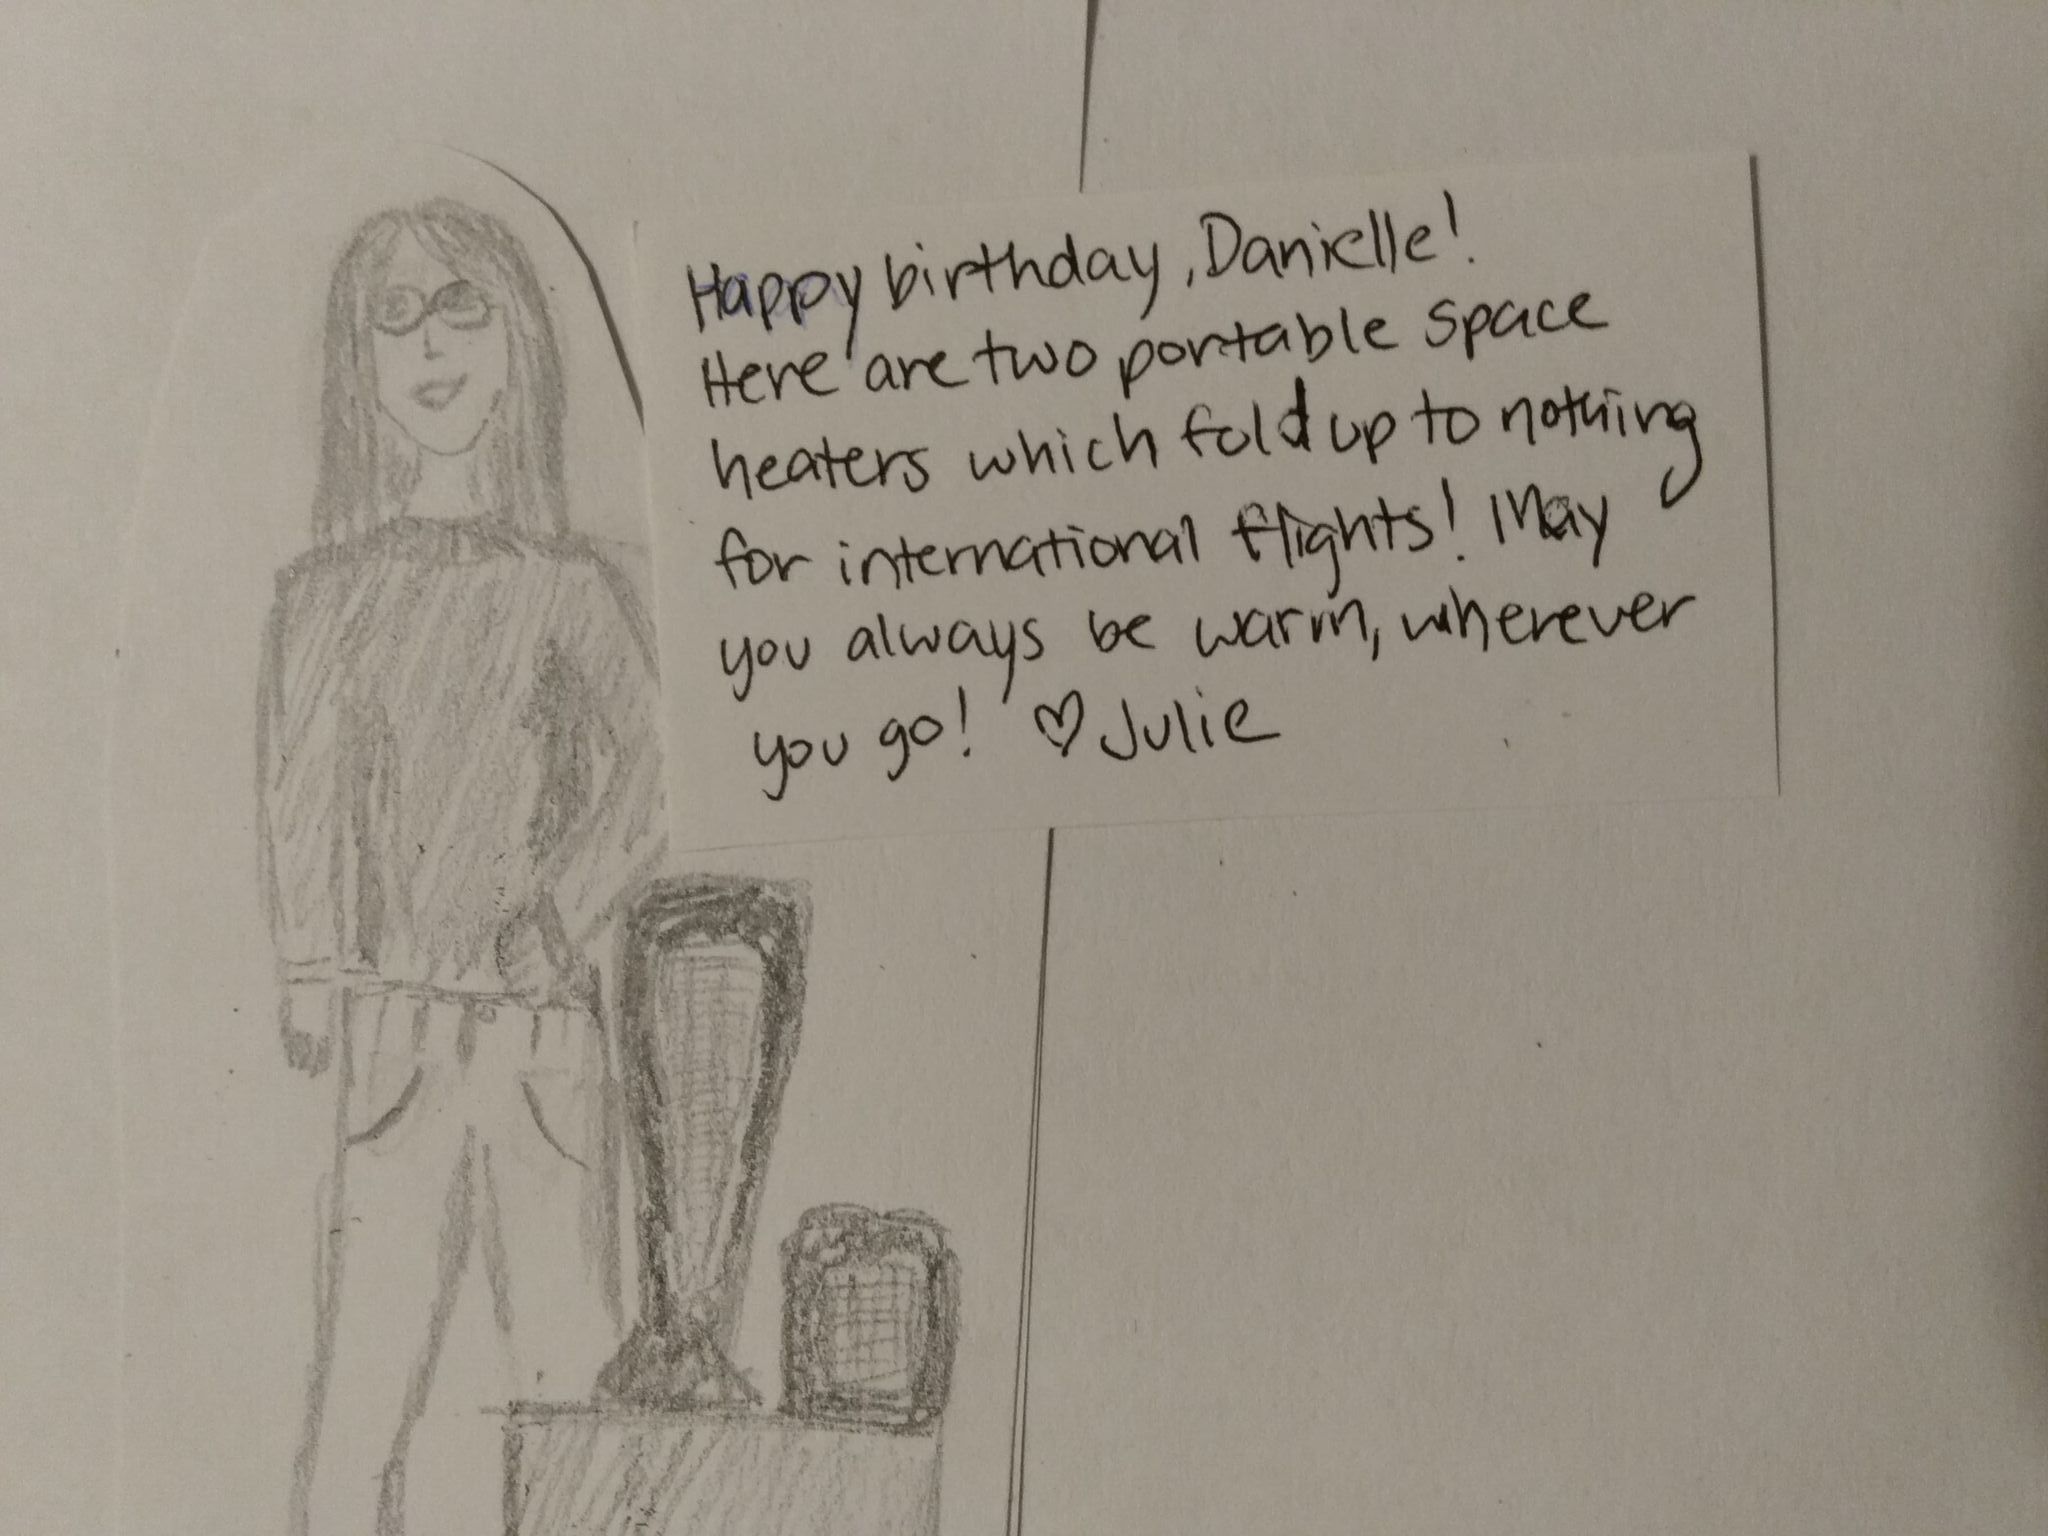 Happy birthday, Danielle!
Here are two portable space
heaters which fold up to nothing
for international flights! May
you always be warm, wherever
you go! ♡ Julie